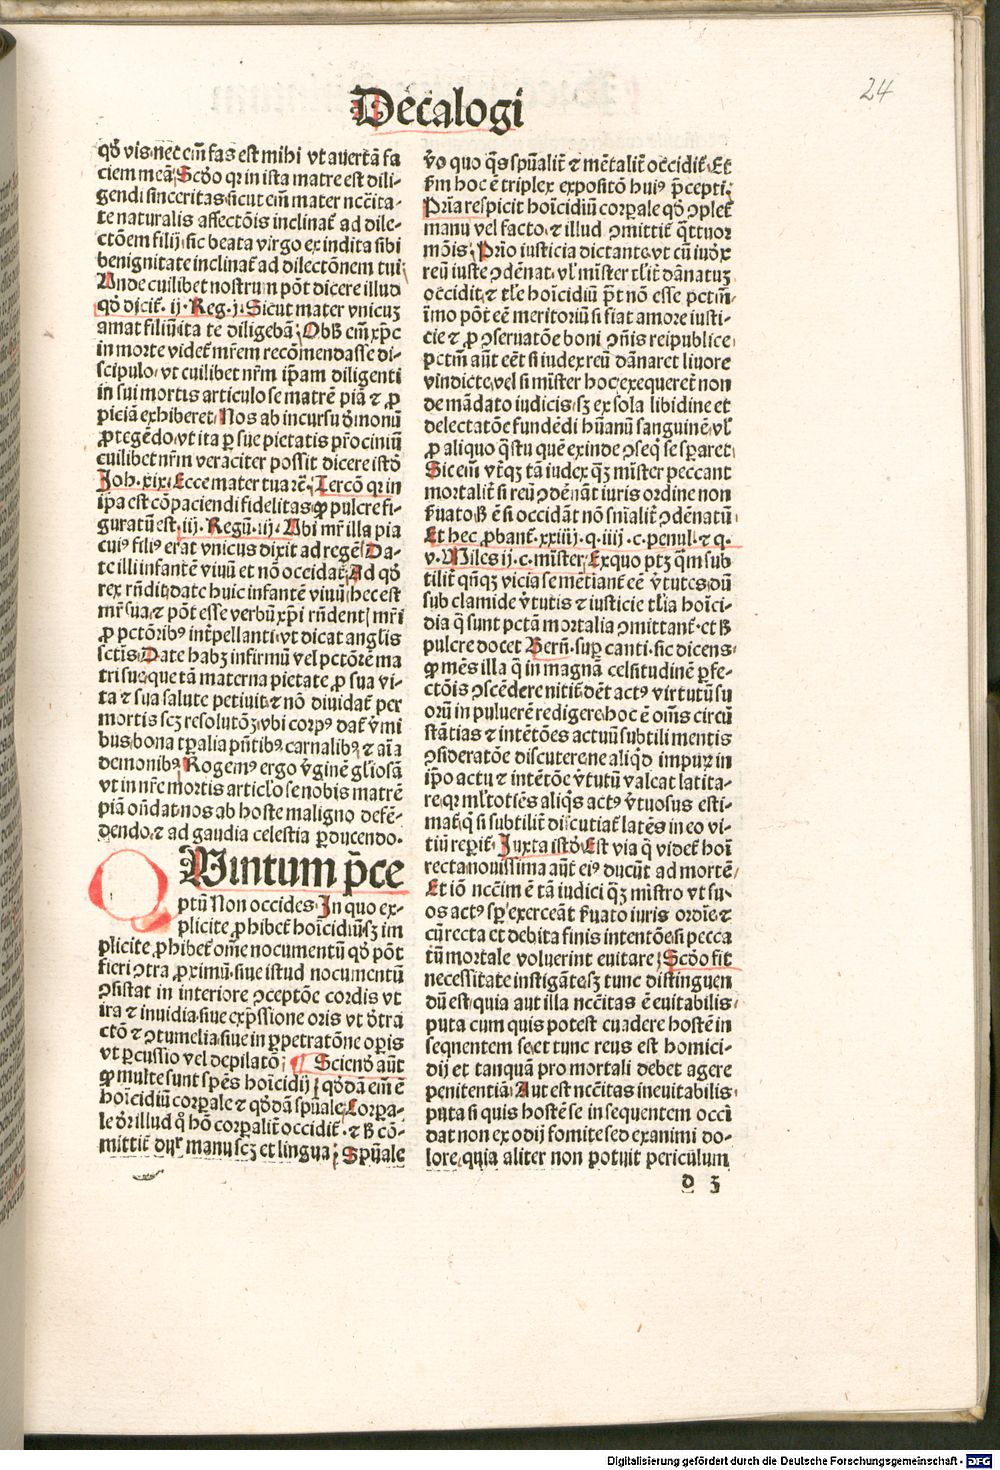 24
Decalogi
qđ vis·nec em̄ fas est mihi vt auertā fa
ciem meā Scđo qꝛ in ista matre est dili-
gendi sinceritas sicut em̄ mater nc̄cita-
te naturalis affectōis inclinat̄ ad dile-
ctōem filij sic beata virgo ex indita sibi
benignitate inclinat̄ ad dilectōnem tui
Unde cuilibet nostrum pōt dicere illud
qđ dicit̄. ij. Reg. j. Sicut mater vnicuꝫ
amat filiū ita te diligebā Ob ꝗ em̄ xp̄c
in morte videt̄ mr̄em recōmendasse di-
scipulo vt cuilibet nr̄m ip̄am diligenti
in sui mortis articulo se matrē piā ⁊ ꝓ
piciā exhiberet Nos ab incursu đmonū
ꝓtegēdo vt ita ꝑ sue pietatis pr̄ociniū
cuilibet nr̄m veraciter possit dicere istđ
Joh. xix. Ecce mater tua rē. Tercō qꝛ in
ip̄a est cōpaciendi fidelitas ꝙ pulcre fi-
guratū est. iij. Regū. iij. Ubi mr̄ illa pia
cuiꝰ filiꝰ erat vnicus dixit ad regē Da-
te illi infantē viuū et nō occidat̄ Ad qđ
rex rn̄dit date huic infantē viuū hec est
mr̄ sua ⁊ pōt esse verbū xp̄i rn̄dent mr̄i
ꝓ pctōribꝰ int̄pellanti vt dicat anglis
sctīs Date habꝫ infirmū vel pctōrē ma
tri sue que tā materna pietate ꝓ sua vi-
ta ⁊ sua salute petiuit ⁊ nō diuidat̄ per
mortis scꝫ resolutōꝫ vbi corpꝰ dat̄ v̄mi
bus bona tꝑalia pn̄tibꝰ carnalibꝰ ⁊ aīa
demonibꝰ Rogemꝰ ergo v̄ginē gl̄iosā
vt in nr̄e mortis articl̄o se nobis matrē
piā on̄dat nos ab hoste maligno defē-
dendo ⁊ ad gaudia celestia ꝑducendo.
Uintum p̄ce
ptū Non occides In quo ex-
plicite ꝓhibet̄ hoīcidiū sꝫ im
plicite ꝓhibet̄ om̄e nocumentū qđ pōt
fieri ꝯtra ꝓximū siue istud nocumentū
ꝯsistat in interiore ꝯceptōe cordis vt
ira ⁊ inuidia siue exp̄ssione oris vt đtra
ctō ⁊ ꝯtumelia siue in ꝑpetratōne oꝑis
vt ꝑcussio vel depilatō Sciendꝰ aūt
ꝙ multe sunt spēs hoīcidij qđdā em̄ ē
hoīcidiū corꝑale ⁊ qđdā spūale Corꝑa-
le đr illud qͦ hō corꝑalit̄ occidit̄. ⁊ ꝗ cō-
mittit̄ dur̄ manu scꝫ et lingua Spūale
v̄o quo qͥs spūalit̄ ⁊ mētalit̄ occidit̄ Et
ẜm hoc ē triplex expositō huiꝰ p̄cepti
Pr̄ia respicit hoīcidiū corꝑale qđ ꝯplet̄
manu vel facto ⁊ illud ꝯmittit̄ qͣttuor
mōis Prīo iusticia dictante vt cū iuđx
reū iuste ꝯdēnat vl̄ mīster tl̄it dānatuꝫ
occidit ⁊ tl̄e hoīcidiū p̄t nō esse pctm̄
īmo pōt eē meritoriū si fiat amore iusti-
cie ⁊ ꝓ ꝯseruatōe boni ꝯn̄is reipublice
pctm̄ aūt eēt si iudex reū dānaret liuore
vindicte vel si mīster hoc exequeret̄ non
de mādato iudicis sꝫ ex sola libidine et
delectatōe fundēdi hūanū sanguinē vl̄
ꝓ aliquo qͣstu quē exinde ꝯseqͥ se sꝑaret
Sic em̄ vt̄qꝫ tā iudex qͣꝫ mīster peccant
mortalit̄ si reū ꝯdēnāt iuris ordine non
ẜuato ꝗ ē si occidāt nō sn̄ialit̄ ꝯdēnatū
Et hec ꝓbant̄. xxiiij. q. iiij. c. penul. ⁊ q.
v. Miles ij. c. mīster Ex quo ptꝫ qͣm sub
tilit̄ qn̄qꝫ vicia se mētiant̄ eē v̄tutes dū
sub clamide v̄tutis ⁊ iusticie tl̄ia hoīci-
dia q̄ sunt pctā mortalia ꝯmittant̄ et ꝗ
pulcre docet Bern̄. suꝑ canti. sic dicens
ꝙ mēs illa q̄ in magnā celsitudinē ꝑfe-
ctōis ꝯscēdere nitit̄ đēt actꝰ virtutū su
orū in puluerē redigere hoc ē om̄s circū
stātias ⁊ intētōes actuū subtili mentis
ꝯsideratōe discutere ne aliqͥd impuꝝ in
ip̄o actu ⁊ intētōe v̄tutū valeat latita-
re qꝛ ml̄totiēs aliqͥs actꝰ v̄tuosus esti-
mat̄ qͥ si subtilit̄ discutiat̄ latēs in eo vi-
tiū reꝑit̄ Juxta istđ Est via q̄ videt̄ hoī
recta nouissima aūt eiꝰ ducūt ad mortē
Et iō nc̄cīm ē tā iudici qͣꝫ mīstro vt su-
os actꝰ sꝑ exerceāt ẜuato iuris ordīe ⁊
cū recta et debita finis intentōe si pecca
tū mortale voluerint euitare Scđo fit
necessitate instigāte sꝫ tunc distinguen
dū est quia aut illa nc̄citas ē euitabilis
puta cum quis potest euadere hostē in
sequentem se et tunc reus est homici-
dij et tanquā pro mortali debet agere
penitentiā Aut est nc̄citas ineuitabilis
puta si quis hostē se insequentem occi
dat non ex odij fomite sed ex animi do-
lore quia aliter non potuit periculum
d 3
Digitalisierung gefördert durch die Deutsche Forschungsgemeinschaft - DFG